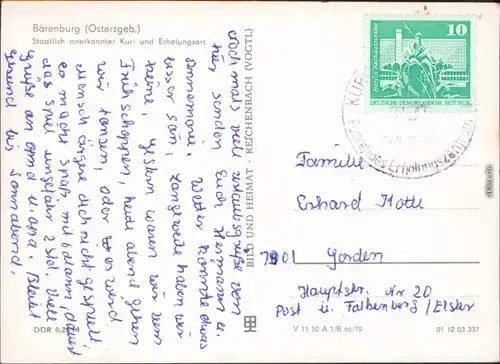 Bärenburg (Osterzgeb.)
Staatlich anerkannter Kur- und Erholungsort
Noch mal viel Urlaubsgrüße von
hier senden Euch Hermann u.
Annemarie. Wetter könnte etwas
besser sein, Langeweile haben wir
keine, gestern waren wir zum
Frühschoppen, heute abend gehen
wir tanzen, oder es wird
Mensch ärgre dich nicht gespielt
es macht Spaß, mit 6 Mann dauert
das Spiel ungefähr 2 Std. Viele
Grüße an Oma u. Opa. Bleibt
gesund bis Sonnabend.
BILD UND HEIMAT · REICHENBACH (VOGTL)
10
DEUTSCHE DEMOKRATISCHE REPUBLIK
Familie
Erhard Kotte
7901 Gorden
Hauptstr. Nr 20
Post ü. Falkenberg/Elster
DDR 0,20 M
V 11 50 A 1/B 66/79
01 12 03 337